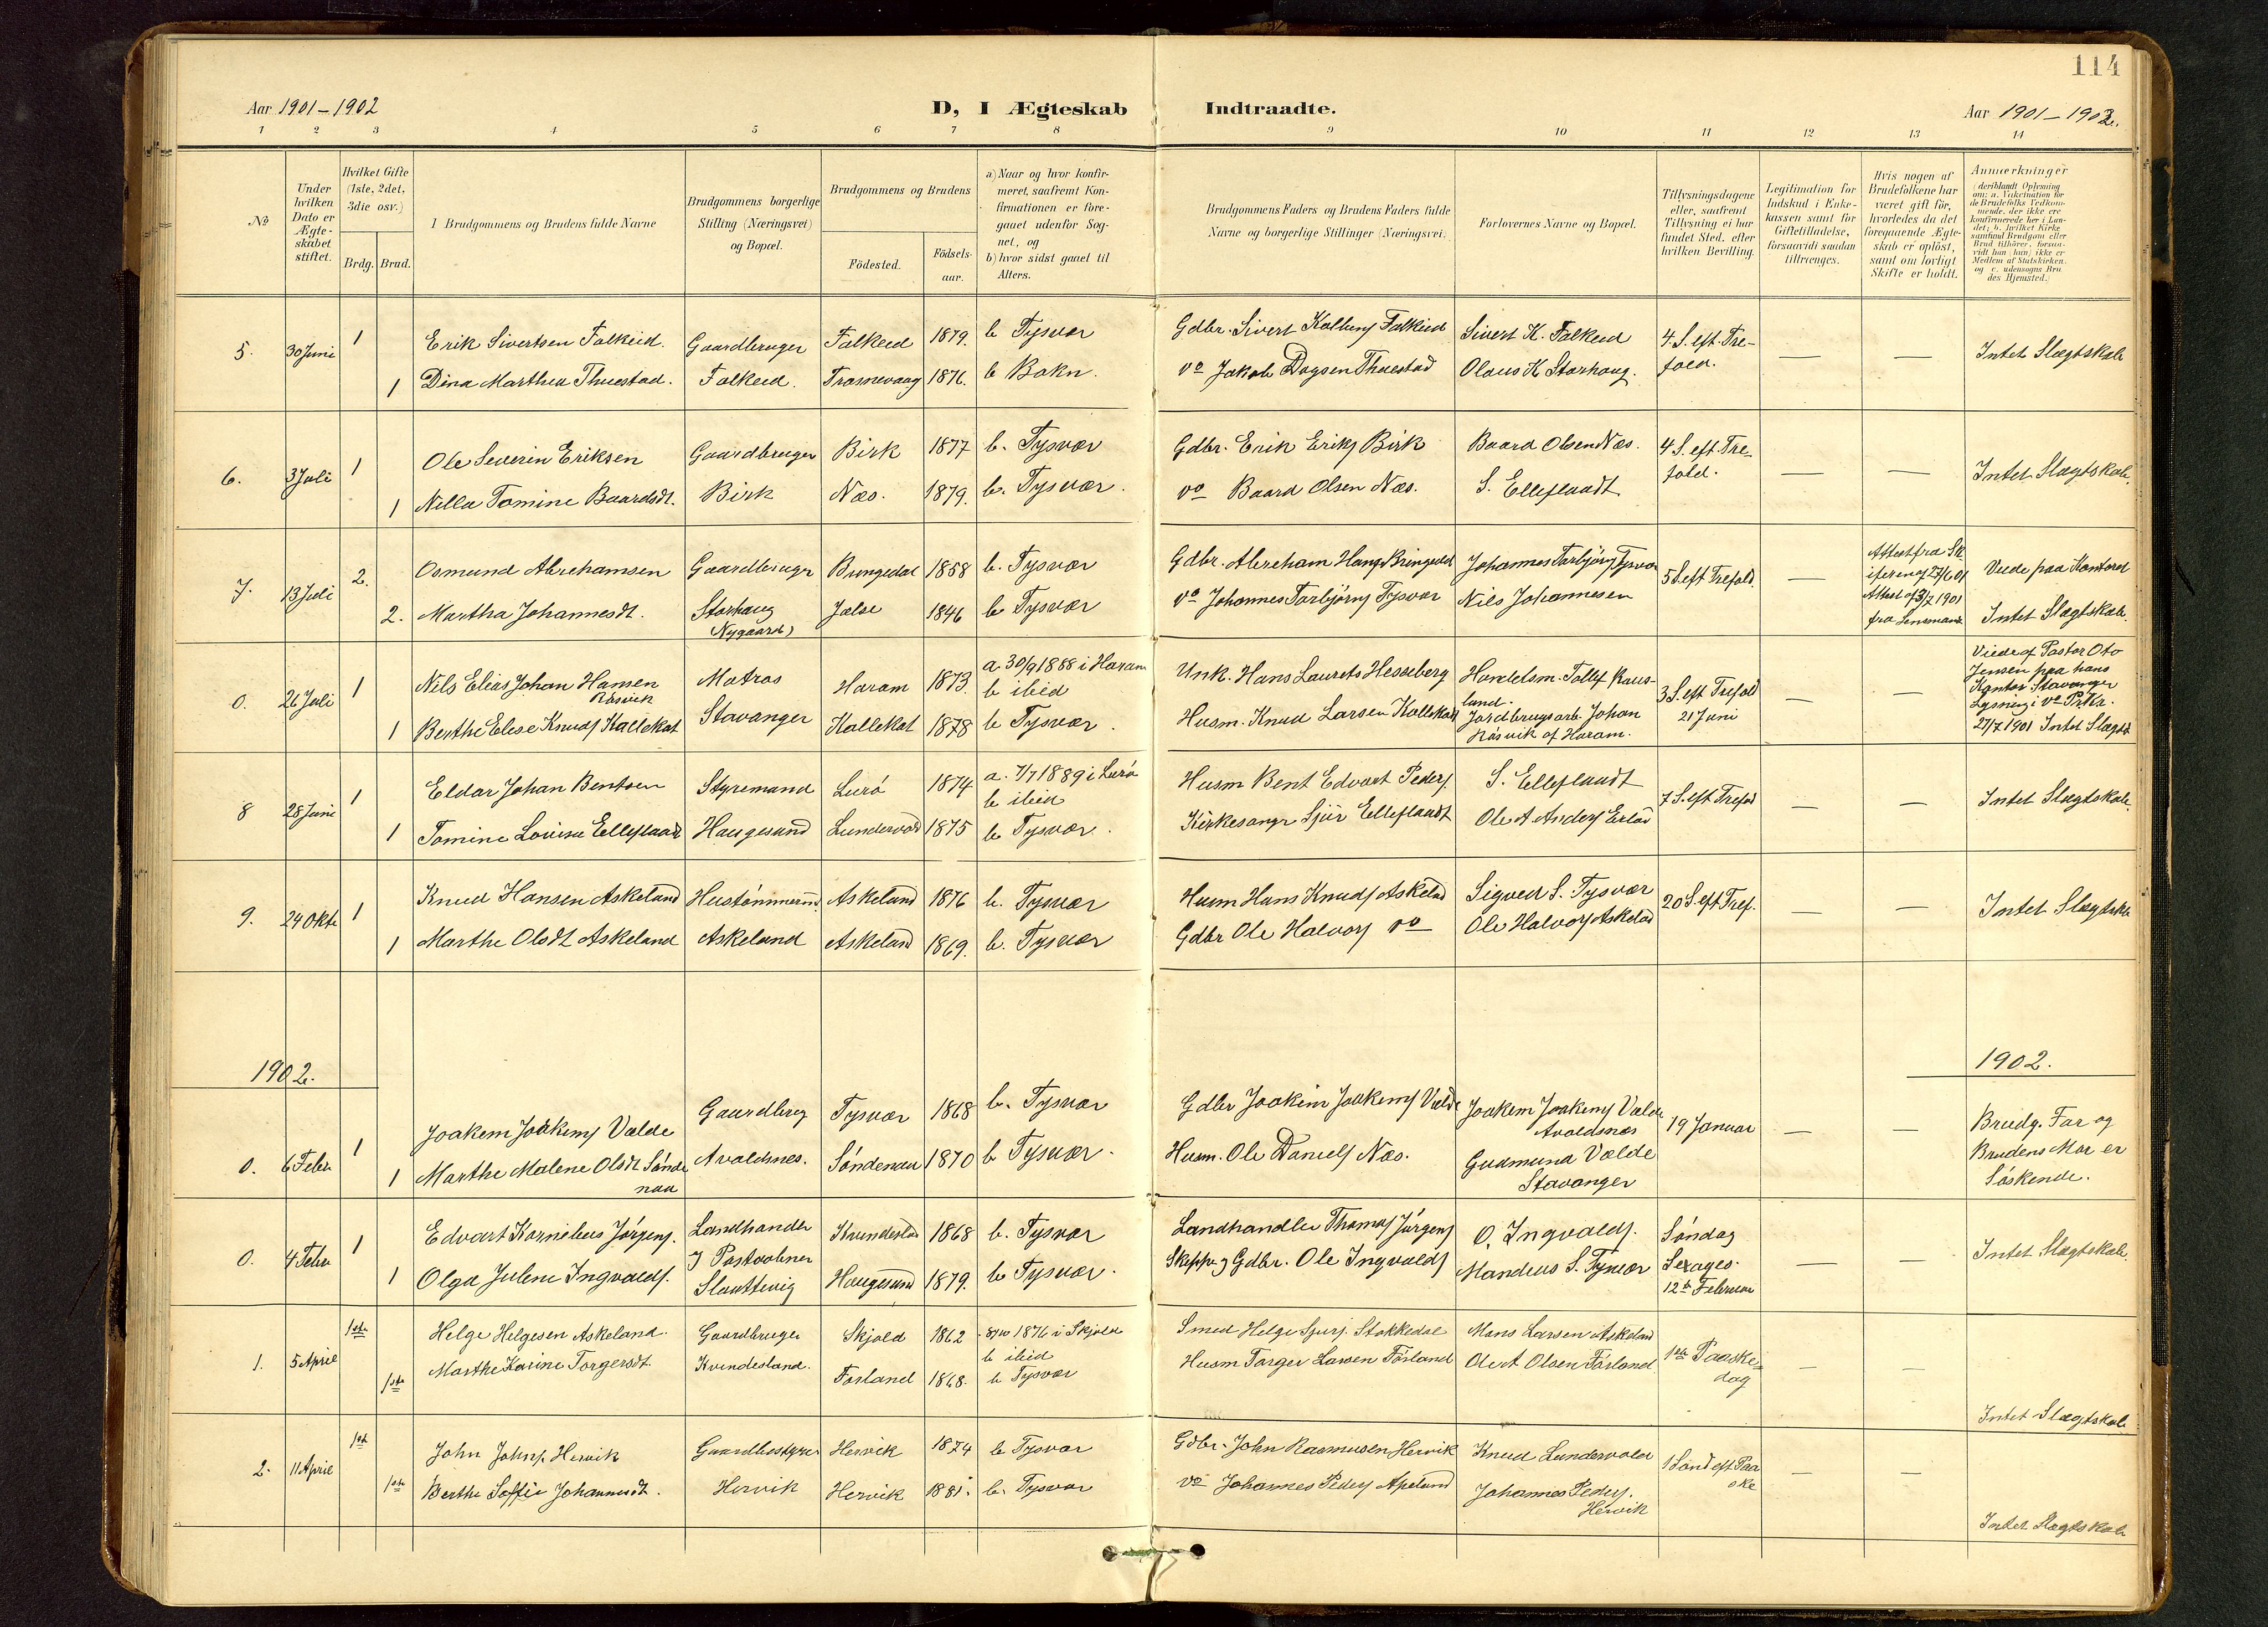 114
Aar 1901–1902
D, I Ægteskab Indtraadte.
Aar 1901–1902.
1 2 3 4 5 6 7 8 9 10 11 12 13 14
No
Under hvilken Dato er Ægteskabet stiftet.
Hvilket Gifte (1ste, 2det, 3die osv.)
Brdg. Brud.
I Brudgommens og Brudens fulde Navne
Brudgommens borgerlige Stilling (Næringsvei) og Bopæl.
Brudgommens og Brudens
Födested.
Födselsaar.
a) Naar og hvor konfirmeret, saafremt Konfirmationen er foregaaet udenfor Sognet, og
b) hvor sidst gaaet til Alters.
Brudgommens Faders og Brudens Faders fulde Navne og borgerlige Stillinger (Næringsvei.
Forlovernes Navne og Bopæl.
Tillysningsdagene eller, saafremt Tillysning ei har fundet Sted, efter hvilken Bevilling.
Legitimation for Indskud i Enkekassen samt for Giftetilladelse, forsaavidt saadan tiltrænges.
Hvis nogen af Brudefolkene har været gift før, hvorledes da det foregaaende Ægteskab er oplöst, samt om lovligt Skifte er holdt.
Anmærkninger
(deriblandt Oplysning om: a. Vakcination for de Brudefolks Vedkommende, der ikke ere konfirmerede her i Landet; b. hvilket Kirkesamfund Brudgom eller Brud tilhörer, forsaavidt han (hun) ikke er Medlem af Statskirken, og c. udensogns Brudes Hjemsted.)
5. 30 Juni 1 Erik Sivertsen Falkeid. Gaardbruger Falkeid 1879. b Tysvær Gdbr. Sivert Kolbens Falkeid Sivert K. Falkeid 4 S. eft. Tre- — — Intet Slægtskab
1 Dina Marthea Thuestad. Falkeid. Trosnevaag 1876. b Bokn. do Jakob Dagsen Thuestad Olaus K Storhaug. fold.
6. 3 Juli 1 Ole Severin Eriksen Gaardbruger Birk 1877 b. Tysvær Gdbr. Erik Eriks Birk Baard Olsen Næs. 4 S. eft. Tre- — — Intet Slægtskab.
1 Nilla Tomine Baardsdt. Birk Næs. 1879. b. Tysvær. do Baard Olsen Næs. S. Elleflaadt. fold.
7. 13 Juli 2. Osmund Abrahamsen Gaardbruger Bringedal 1858 b. Tysvær Gdbr. Abraham Hans Bringedal Johannes Torbjörns Tysvær 5 S. eft Trefold. — Attest fra
af 27/6 01 Viede paa Kontoret
2. Martha Johannesdt. Storhaug Jelse 1846 b Tysvær do Johannes Torbjörns Tysvær Nils Johannesen Attest af 3/7 1901
(Nygaard) fra Lensmand Intet Slægtskab.
0. 26 Juli 1 Nils Elias Johan Hansen Matros Haram 1873. a 30/9 1888 i Haram Hans Laurets Hesseberg Handelsm. Tollef
Røsvik b ibid land. 3 S. eft Trefold — —
1 Berthe Elese Knuds Kallekot Stavanger Kallekot 1878 b Tysvær. Husm. Knud Larsen Kallekot Jordbrugsarb. Johan 21 Juni
Røsvik af Haram.
Viede af Pastor Oto
Jensen paa hans
Kontor Stavanger
Lysning i do Prkr.
27/7 1901 Intet Slægtsk
8 28 Juni 1 Eldar Johan Bentsen Styremand Lurö 1874 a. 7/7 1889 i Lurö Husm Bent Edvart Peders S. Elleflaadt 7 S. eft Trefold — — Intet Slægtskab.
b ibid
1 Tomine Lovise Elleflaadt Haugesund Lundervold 1875 b Tysvær. Kirkesangr Sjür Elleflaadt Ole A Anders
9. 24 Okt 1 Knud Hansen Askeland Hustömmerm. Askeland 1876 b. Tysvær Husm Hans Knuds Askeland Sigved S. Tysvær 20 S. eft Tref. — — Intet Slægtskab
1 Marthe Olsdt Askeland Askeland Askeland 1869. b. Tysvær Gdbr Ole Halvors do Ole Halvors Askeland
1902. 1902.
0. 6 Febr 1 Joakem Joakems Valde Gaardbrug Tysvær 1868 b. Tysvær Gdbr Joakim Joakems Valde Joakem Joakems Valde 19 Januar — — Brudg. Far og
Avaldsnæs Brudens Mor er
1 Marthe Malene Olsdt Sønde Avaldsnes. Søndenaa 1870 b Tysvær. Husm. Ole Daniels Næs. Gudmund Valde Söskende.
naa Stavanger
0. 4 Febr 1 Edvart Kornelius Jørgens. Landhandler Kvindesland 1868 b. Tysvær Landhandler Thomas Jörgens O. Ingvalds. Søndag — — Intet Slægtskab.
og Postaabner
1 Olga Juline Ingvalds. Slaattevig Haugesund 1879. b Tysvær. Skippr og Gdbr. Ole Ingvalds Mandius S. Tysvær Sexages.
12te Februar
1. 5 April 1ste Helge Helgesen Askeland. Gaardbruger Skjold 1862 8/10 1876 i Skjold Smed Helge Sjurs. Stakkedal Mons Larsen Askeland 1ste Paaske- — —
b ibid dag
1ste Marthe Karine Torgersdt. Kvindesland. Førland 1868. b Tysvær Husm Torger Larsen Førland Olert Olsen Førland
Intet Slægtskab
2. 11 April 1ste John Johns. Hervik Gaardbestyrer Hervik 1874 b Tysvær Gdbr. John Rasmusen Hervik Knud Lundervold 1 Sønd eft Paa — —
ske
1ste Berthe Soffie Johannesdt. Hervik Hervik 1881. b. Tysvær do Johannes Peders Apeland Johannes Peders.
Hervik
Intet Slægtskab